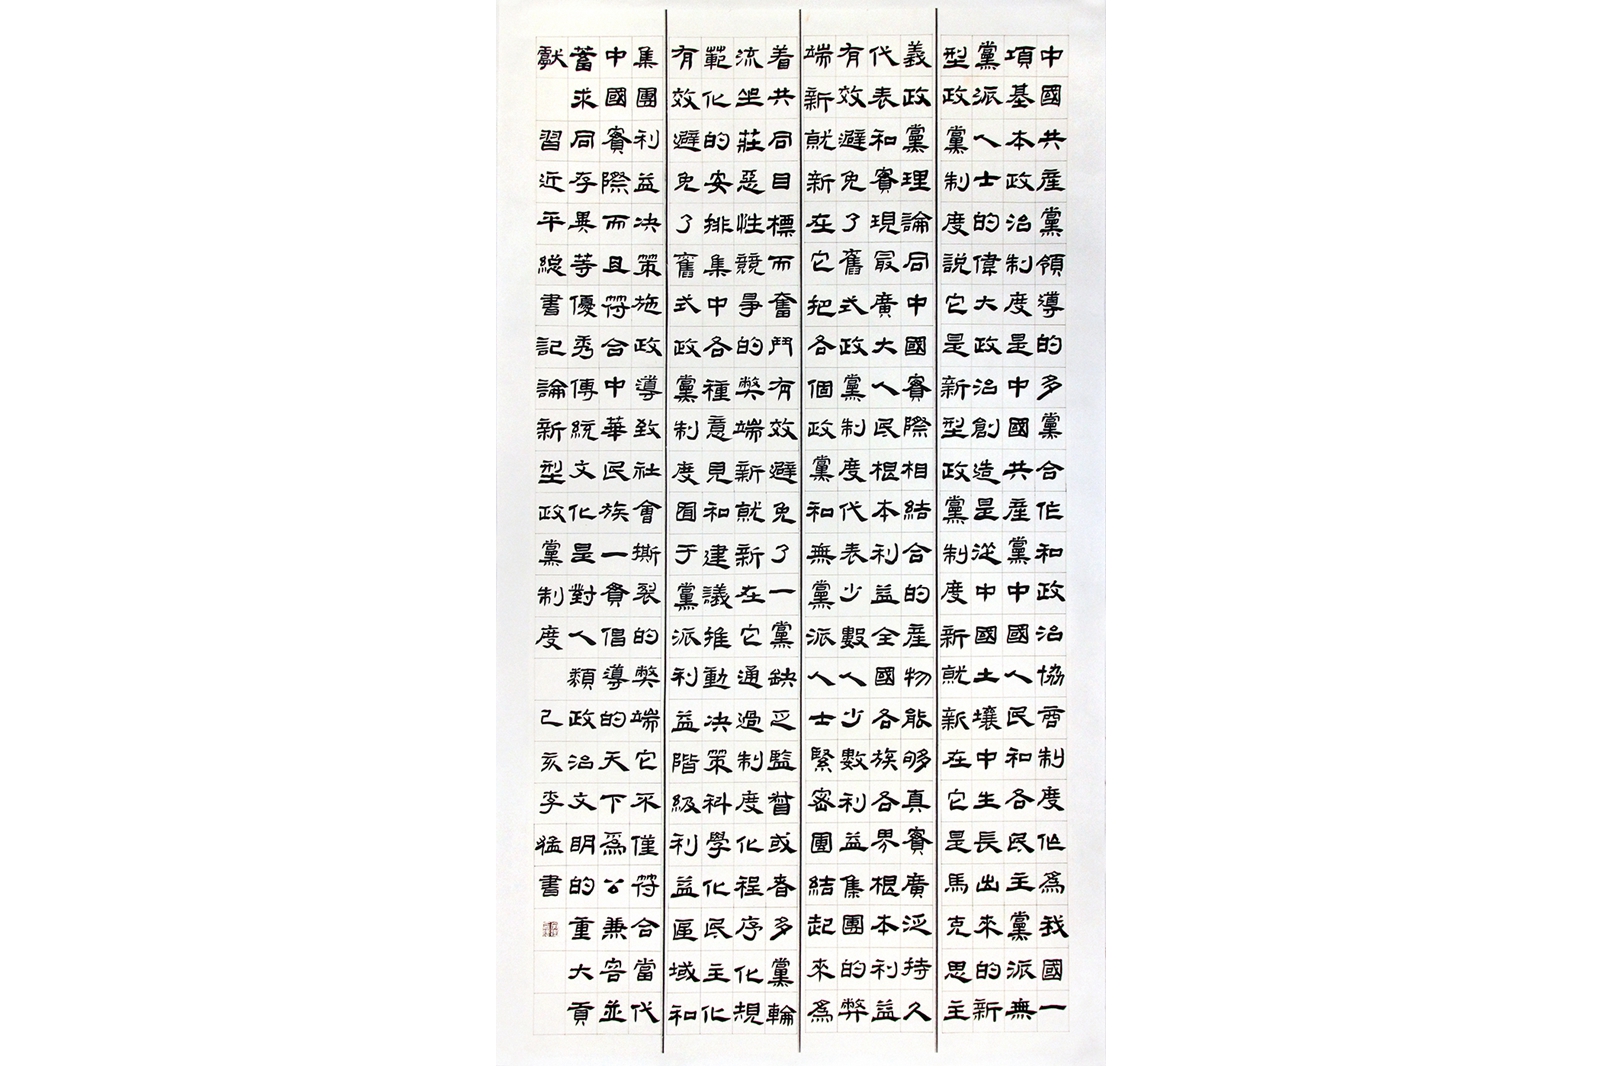 中國共産黨領導的多黨合作和政治協商制度作爲我國一
項基本政治制度是中國共産黨中國人民和各民主黨派無
黨派人士的偉大政治創造是從中國土壤中生長出來的新
型政黨制度説它是新型政黨制度新就新在它是馬克思主
義政黨理論同中國實際相結合的産物能够真實廣泛持久
代表和實現最廣大人民根本利益全國各族各界根本利益
有效避免了舊式政黨制度代表少數人少數利益集團的弊
端新就新在它把各個政黨和無黨派人士緊密團結起來爲
着共同目標而奮鬥有效避免了一黨缺乏監督或者多黨輪
流坐莊惡性競争的弊端新就新在它通過制度化程序化規
範化的安排集中各種意見和建議推動决策科學化民主化
有效避免了舊式政黨制度囿于黨派利益階級利益區域和
集團利益决策施政導致社會撕裂的弊端它不僅符合當代
中國實際而且符合中華民族一貫倡導的天下爲公兼容並
蓄求同存異等優秀傳統文化是對人類政治文明的重大貢
獻 習近平總書記論新型政黨制度 己亥李猛書